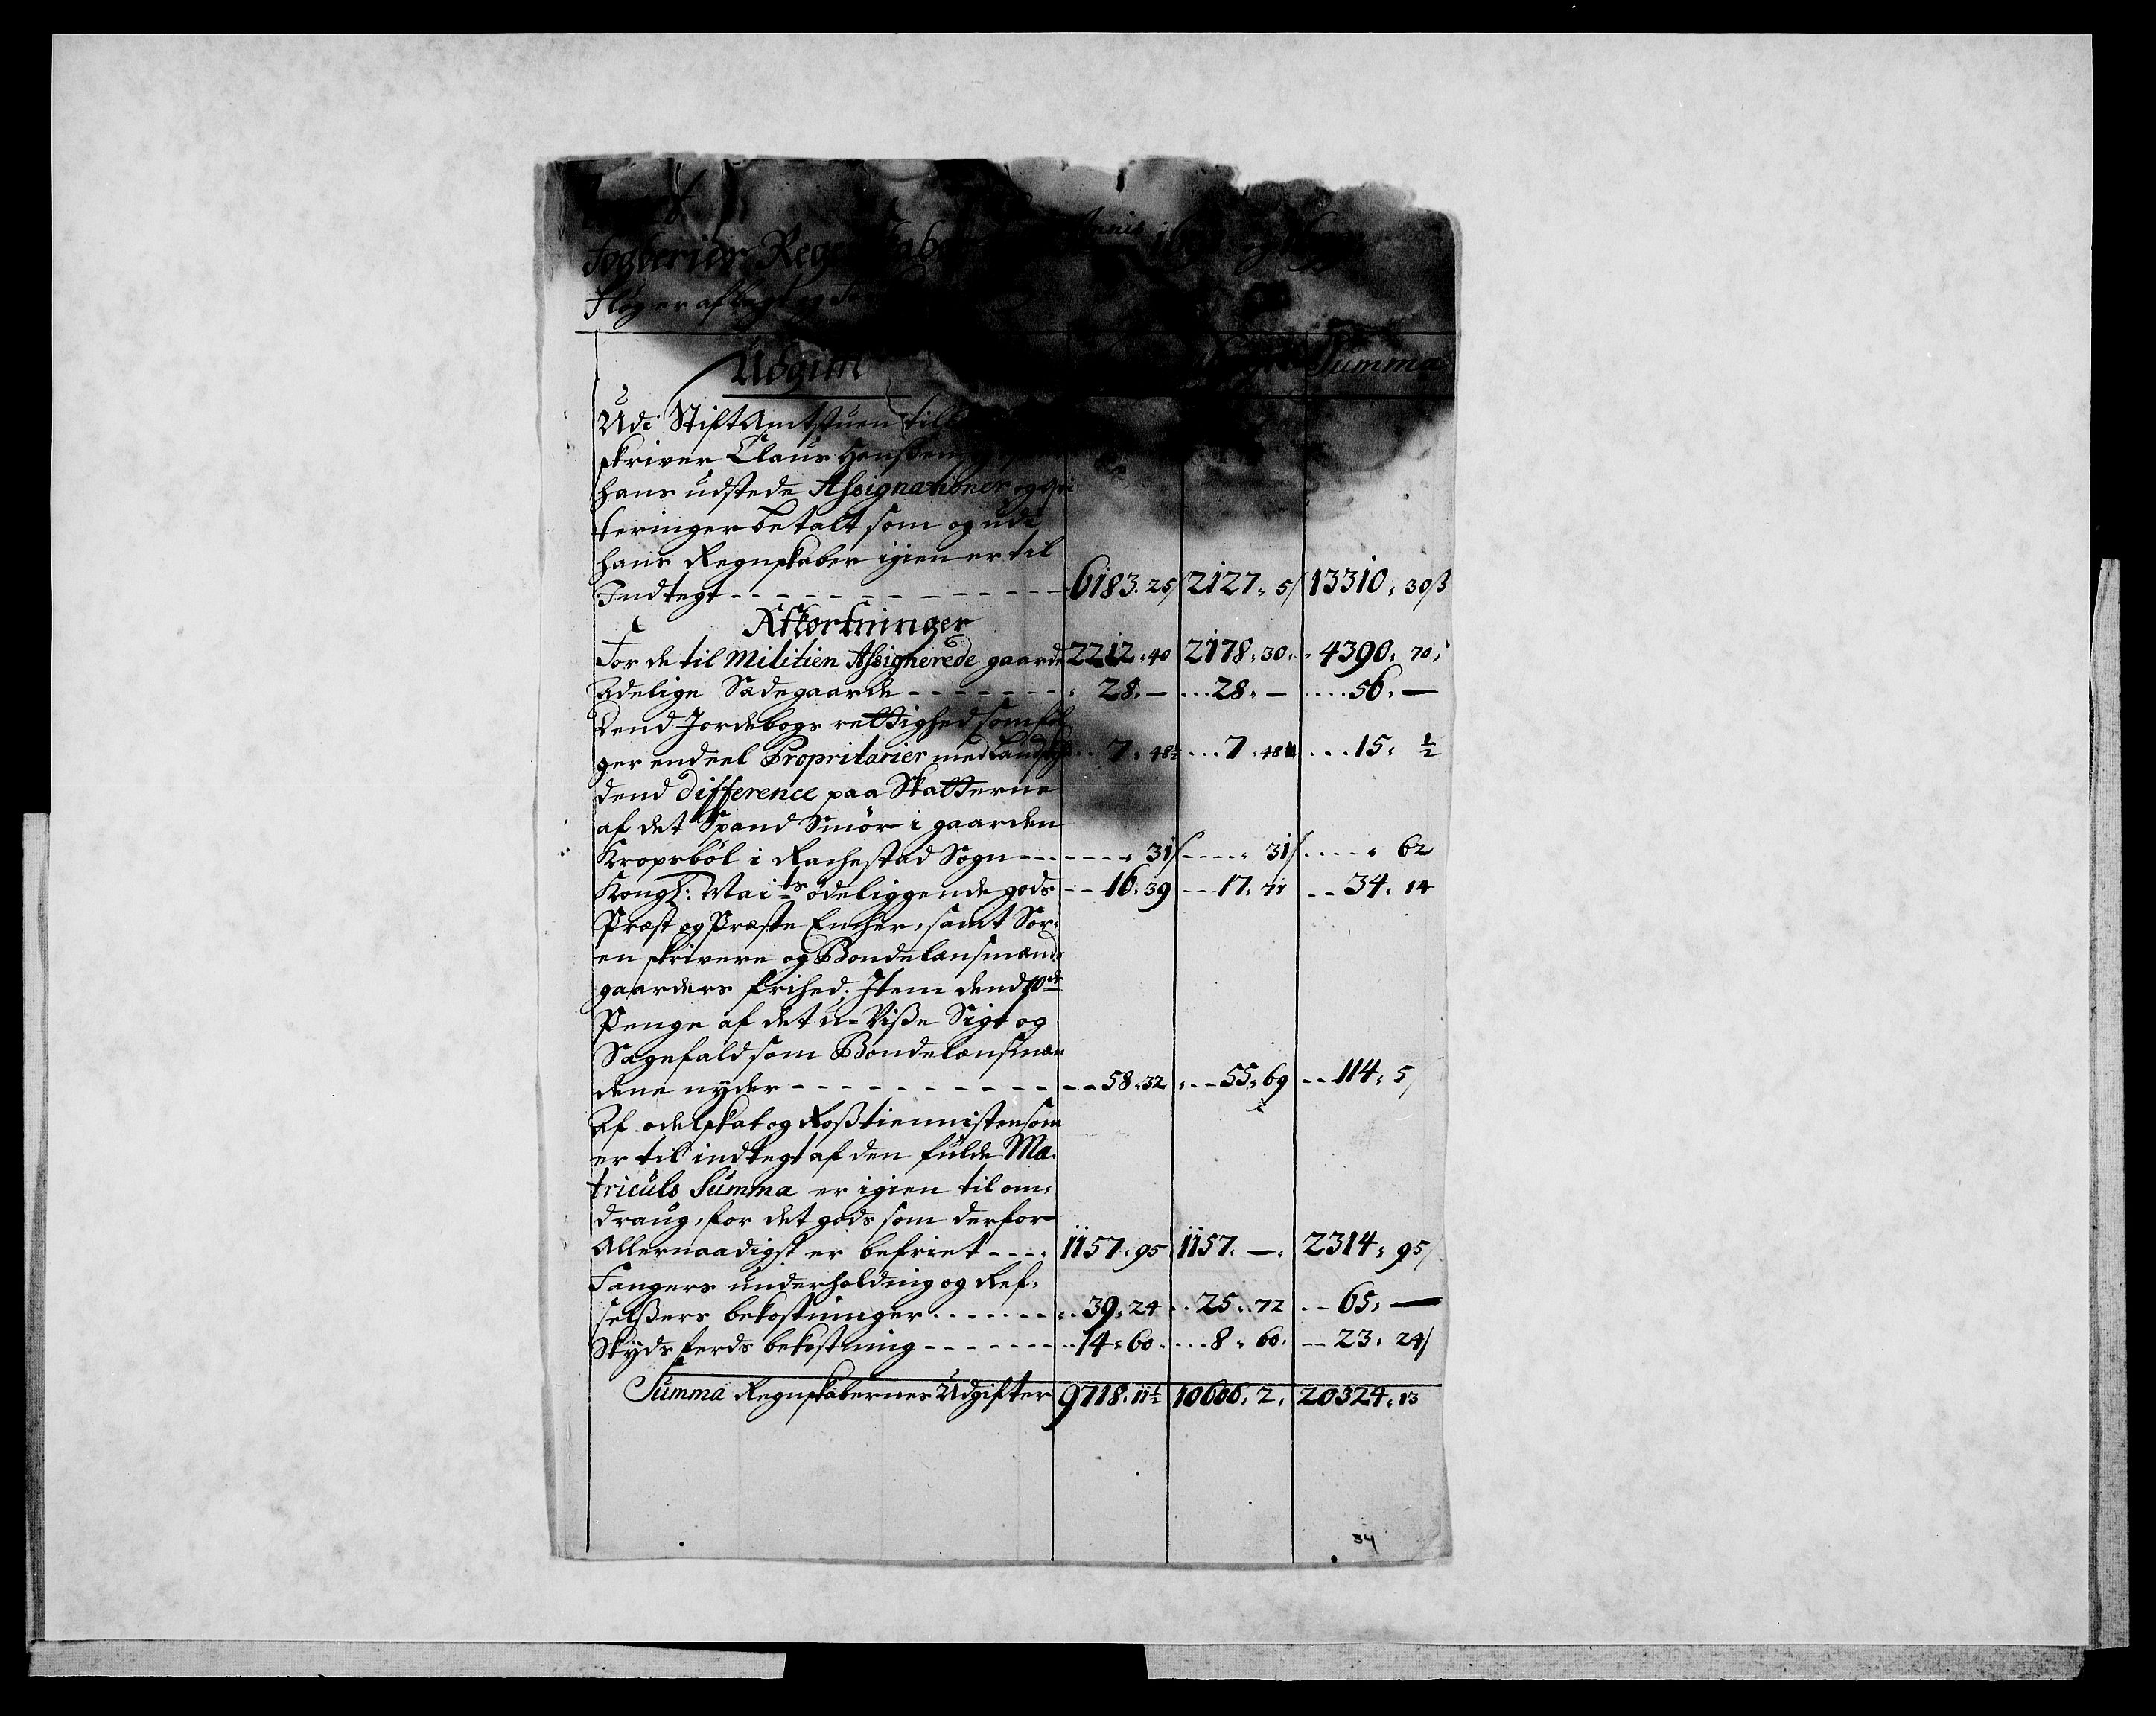 Fogderiers Regenskaber Annis 16
Udgift Summa
Udi Stiftamtstuen till
skriver Claus Hanssen
hans udstede Assignationer og qvi
teringer betalt som og udi
hans Regnskaber igien er til
Indtegt - - - 6183. 25/ 2127. 5/ 13310. 30 β
Afkortninger
For de til Militien Assignerede gaarde 2212. 40 2178. 30. 4390. 70.
Adelige Sædegaarde - - - 28. — 28. — 56. —
Dend Jordebogs rettighed som føl
ger endeel Proprietarier med Landsky 7. 48½ 7. 48 15. ½
dend difference paa Skatterne
af det Spand Smör i gaarden
Kropsböl i Rachestad Sogn - - - 31/ 31/ 62
Kongl: Mai:ts ödeliggende gods - - 16. 39 - - 17. 71 - - 34. 14
Præst og Præste Encher, samt Sor-
en skrivere og Bondelænsmænds
gaarders frihed. Item dend 10de
Penge af det u-Visse Sigt og
Sagefald som Bondelænsmæn
dene nyder - - - 58. 32 55. 69 114. 5/
Af odelskat og Rosstiennisten som
er til indtegt af den fulde Ma-
triculs Summa er igien til om-
draug, for det gods som derfor
Allernaadigst er befriet - - - 1157. 95 1157. —. 2314. 95/
Fangers underholding og Ref-
selssers bekostninger - - - 39. 24 25. 72 65. —
Skyds ferds bekostning - - - 14. 60 8. 60. 23. 24/
Summa Regnskabernes Udgifter 9718. 11½ 10606. 2. 20324. 13
34